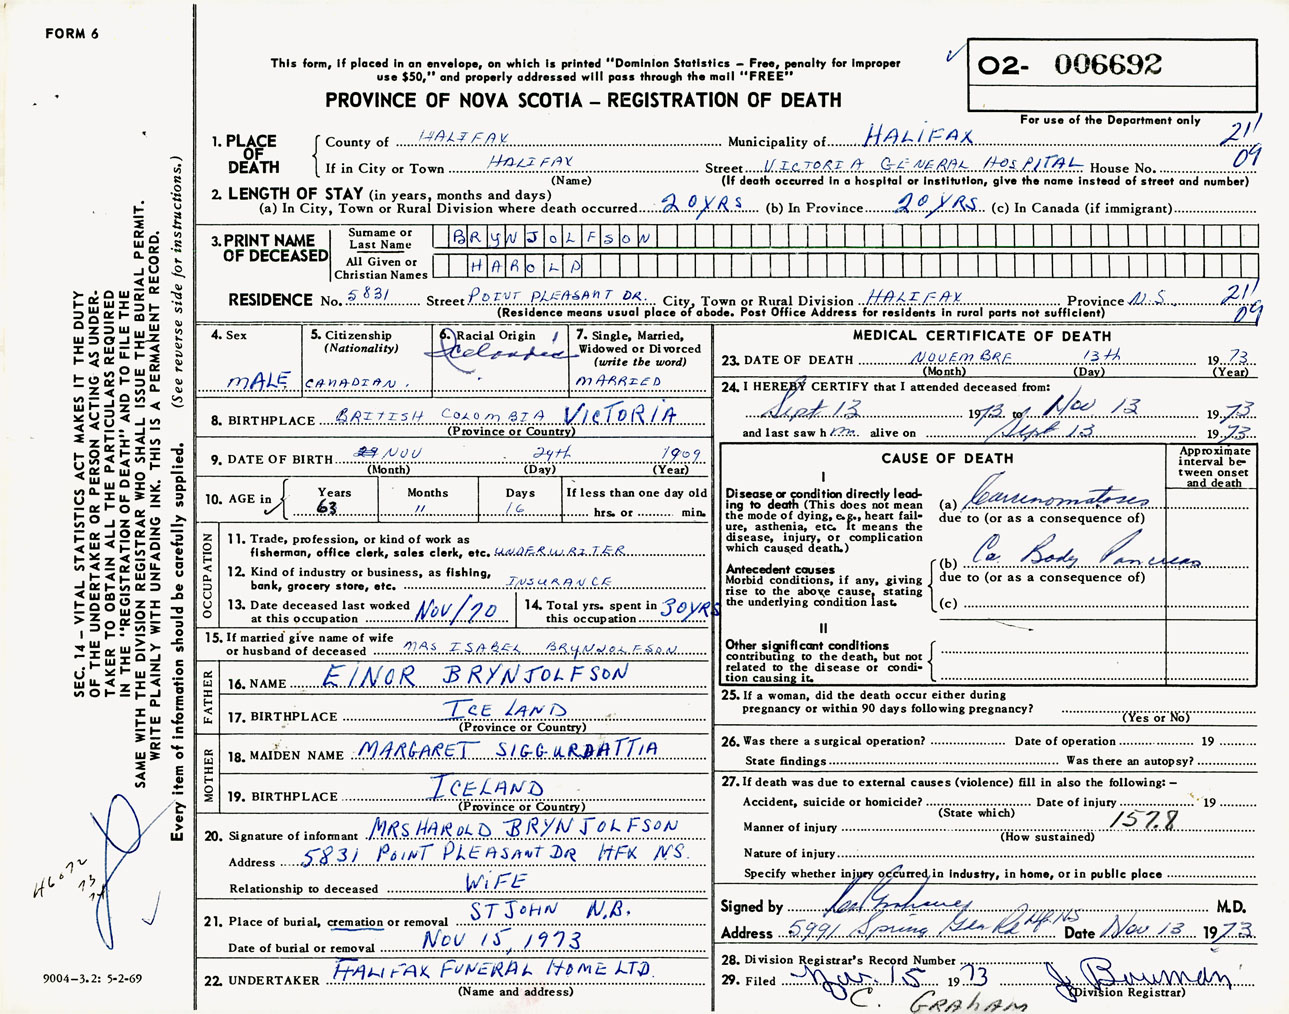 FORM 6
SEC. 14 – VITAL STATISTICS ACT MAKES IT THE DUTY
OF THE UNDERTAKER OR PERSON ACTING AS UNDER-
TAKER TO OBTAIN ALL THE PARTICULARS REQUIRED
IN THE "REGISTRATION OF DEATH" AND TO FILE THE
SAME WITH THE DIVISION REGISTRAR WHO SHALL ISSUE THE BURIAL PERMIT.
WRITE PLAINLY WITH UNFADING INK. THIS IS A PERMANENT RECORD.
Every item of information should be carefully supplied. (See reverse side for instructions.)
9004–3.2: 5-2-69
This form, if placed in an envelope, on which is printed "Dominion Statistics – Free, penalty for improper
use $50," and properly addressed will pass through the mail "FREE"
PROVINCE OF NOVA SCOTIA – REGISTRATION OF DEATH
02- 006692
For use of the Department only
21
09
1. PLACE OF DEATH
County of HALIFAX Municipality of HALIFAX
If in City or Town HALIFAX Street VICTORIA GENERAL HOSPITAL House No.
(Name) (If death occurred in a hospital or institution, give the name instead of street and number)
2. LENGTH OF STAY (in years, months and days)
(a) In City, Town or Rural Division where death occurred 20 YRS (b) In Province 20 YRS (c) In Canada (if immigrant)
3. PRINT NAME OF DECEASED
Surname or Last Name BRYNJOLFSON
All Given or Christian Names HAROLD
RESIDENCE No. 5831 Street POINT PLEASANT DR. City, Town or Rural Division HALIFAX Province N.S.
21
09
(Residence means usual place of abode. Post Office Address for residents in rural parts not sufficient)
4. Sex MALE
5. Citizenship (Nationality) CANADIAN.
6. Racial Origin
7. Single, Married, Widowed or Divorced (write the word) MARRIED
8. BIRTHPLACE BRITISH COLOMBIA VICTORIA
(Province or Country)
9. DATE OF BIRTH NOV 24th 1909
(Month) (Day) (Year)
10. AGE in Years Months Days If less than one day old
63 11 16 hrs. or min.
OCCUPATION
11. Trade, profession, or kind of work as
fisherman, office clerk, sales clerk, etc. UNDERWRITER
12. Kind of industry or business, as fishing,
bank, grocery store, etc. INSURANCE
13. Date deceased last worked at this occupation NOV/70
14. Total yrs. spent in this occupation 30 YRS
15. If married give name of wife
or husband of deceased MRS ISABEL BRYNJOLFSON
FATHER
16. NAME EINOR BRYNJOLFSON
17. BIRTHPLACE ICELAND
(Province or Country)
MOTHER
18. MAIDEN NAME MARGARET SIGGURDATTIA
19. BIRTHPLACE ICELAND
(Province or Country)
20. Signature of informant MRS HAROLD BRYNJOLFSON
Address 5831 POINT PLEASANT DR HFX NS.
Relationship to deceased WIFE
21. Place of burial, cremation or removal ST JOHN N.B.
Date of burial or removal NOV 15, 1973
22. UNDERTAKER HALIFAX FUNERAL HOME LTD.
(Name and address)
MEDICAL CERTIFICATE OF DEATH
23. DATE OF DEATH NOVEMBRE 13th 1973
(Month) (Day) (Year)
24. I HEREBY CERTIFY that I attended deceased from:
Sept 13 1973 to Nov 13 1973
and last saw him alive on Sept 13 1973
CAUSE OF DEATH
Approximate interval between onset and death
I
Disease or condition directly lead-
ing to death (This does not mean
the mode of dying, e.g., heart fail-
ure, asthenia, etc. It means the
disease, injury, or complication
which caused death.)
(a) Carcinomatosis
due to (or as a consequence of)
Antecedent causes
Morbid conditions, if any, giving
rise to the above cause, stating
the underlying condition last.
(b) Ca. Body Pancreas
due to (or as a consequence of)
(c)
II
Other significant conditions
contributing to the death, but not
related to the disease or condi-
tion causing it.
25. If a woman, did the death occur either during
pregnancy or within 90 days following pregnancy?
(Yes or No)
26. Was there a surgical operation? Date of operation 19
State findings Was there an autopsy?
27. If death was due to external causes (violence) fill in also the following: –
Accident, suicide or homicide? Date of injury 19
(State which)
157.8
Manner of injury
(How sustained)
Nature of injury
Specify whether injury occurred in industry, in home, or in public place
Signed by M.D.
Address 5991 Spring Garden Rd Hfx NS Date Nov 13 1973
28. Division Registrar's Record Number
29. Filed Nov. 15 1973 J Bowman
(Division Registrar)
C. GRAHAM